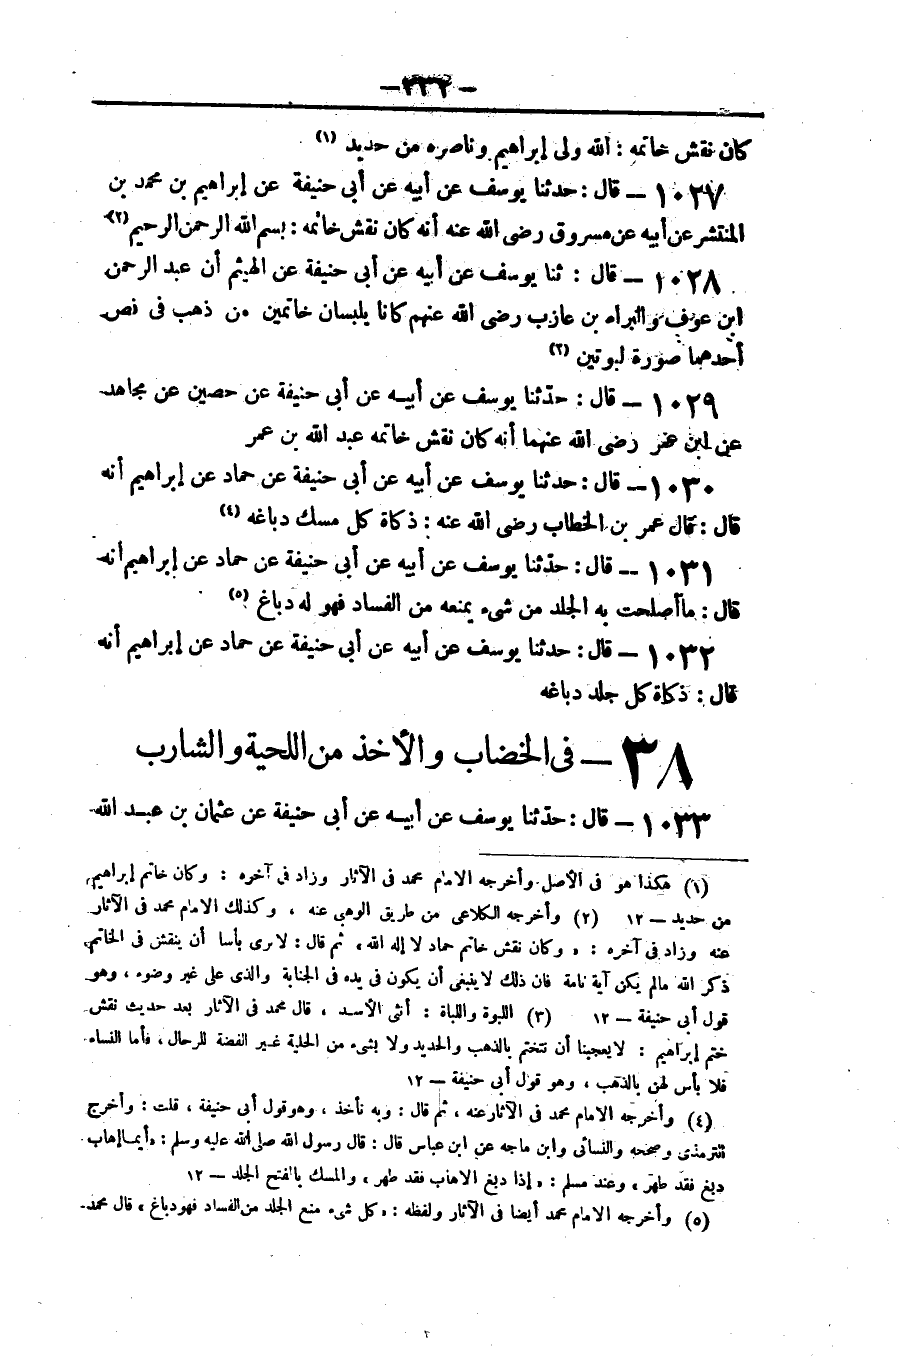 — ٢٣٢ —
كان نقش خاتمه : الله ولى إبراهيم وناصره من حديد (١)
١٠٢٧ — قال : حدثنا يوسف عن أبيه عن أبى حنيفة عن إبراهيم بن محمد بن
المنتشر عن أبيه عن مسروق رضى الله عنه أنه كان نقش خاتمه : بسم الله الرحمن الرحيم (٢)
١٠٢٨ — قال : ثنا يوسف عن أبيه عن أبى حنيفة عن الهيثم أن عبد الرحمن
ابن عوف والبراء بن عازب رضى الله عنهم كانا يلبسان خاتمين من ذهب فى نص
أحدهما صورة لبوتين (٣)
١٠٢٩ — قال : حدثنا يوسف عن أبيه عن أبى حنيفة عن حصين عن مجاهد
عن ابن عمر رضى الله عنهما أنه كان نقش خاتمه عبد الله بن عمر
١٠٣٠ — قال : حدثنا يوسف عن أبيه عن أبى حنيفة عن حماد عن إبراهيم أنه
قال : قال عمر بن الخطاب رضى الله عنه : ذكاة كل مسك دباغه (٤)
١٠٣١ — قال : حدثنا يوسف عن أبيه عن أبى حنيفة عن حماد عن إبراهيم أنه
قال : ما أصلحت به الجلد من شىء يمنعه من الفساد فهو له دباغ (٥)
١٠٣٢ — قال : حدثنا يوسف عن أبيه عن أبى حنيفة عن حماد عن إبراهيم أنه
قال : ذكاة كل جلد دباغه
٣٨ — فى الخضاب والأخذ من اللحية والشارب
١٠٣٣ — قال : حدثنا يوسف عن أبيه عن أبى حنيفة عن عثمان بن عبد الله
(١) هكذا هو فى الأصل وأخرجه الامام محمد فى الآثار وزاد فى آخره : وكان خاتم إبراهيم
من حديد — ١٢ (٢) وأخرجه الكلاعى من طريق الوهبى عنه ، وكذلك الامام محمد فى الآثار
عنه وزاد فى آخره : « وكان نقش خاتم حماد لا إله الله » ثم قال : لا نرى بأسا أن ينقش فى الخاتم
ذكر الله مالم يكن آية تامة فان ذلك لا ينبغى أن يكون فى يده فى الجنابة والذى على غير وضوء ، وهو
قول أبى حنيفة — ١٢ (٣) اللبوة واللباة : أنثى الأسد ، قال محمد فى الآثار بعد حديث نقش
ختم إبراهيم : لا يعجبنا أن تتختم بالذهب والحديد ولا بشىء من الحلية غير الفضة للرجال ، فأما النساء
فلا بأس لهن بالذهب ، وهو قول أبى حنيفة — ١٢
(٤) وأخرجه الامام محمد فى الآثار عنه ، ثم قال : وبه نأخذ ، وهو قول أبى حنيفة ، قلت : وأخرج
الترمذى وصححه والنسائى وابن ماجه عن ابن عباس قال : قال رسول الله صلى الله عليه وسلم : « أيما إهاب
دبغ فقد طهر » وعند مسلم : « إذا دبغ الاهاب فقد طهر » والمسك بالفتح الجلد — ١٢
(٥) وأخرجه الامام محمد أيضا فى الآثار ولفظه : « كل شىء منع الجلد من الفساد فهو دباغ » قال محمد